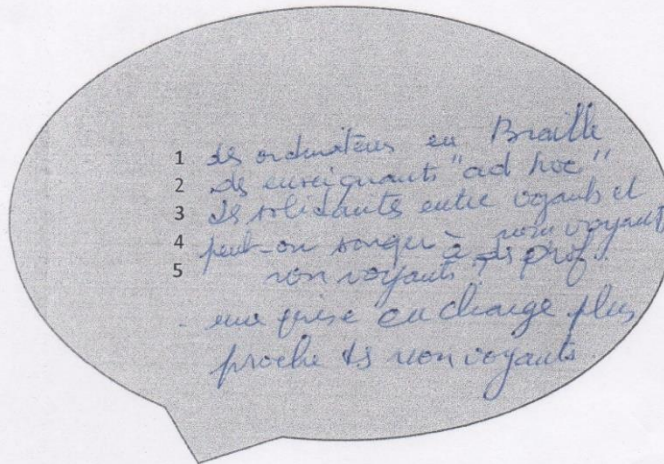 1 des ordinateurs en Braille
2 des enseignants "ad hoc"
3 des solidarités entre voyants et
non voyants
4 peut-on songer à des prof.
5 non voyants ?
- une prise en charge plus
proche des non voyants.